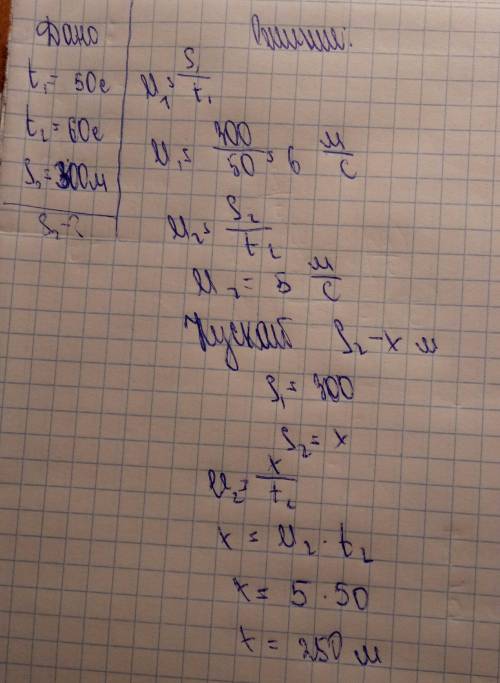 Дано
t₁ = 50с
t₂ = 60с
S₁ = 300м
S₂ - ?
Решение:
V₁ = S₁/t₁
V₁ = 300/50 = 6 м/с
V₂ = S₂/t₂
V₂ = 5 м/с
Пускай S₂ - x м
S₁ = 300
S₂ = x
V₂ = x/t₂
x = V₂ · t₂
x = 5 · 50
x = 250 м